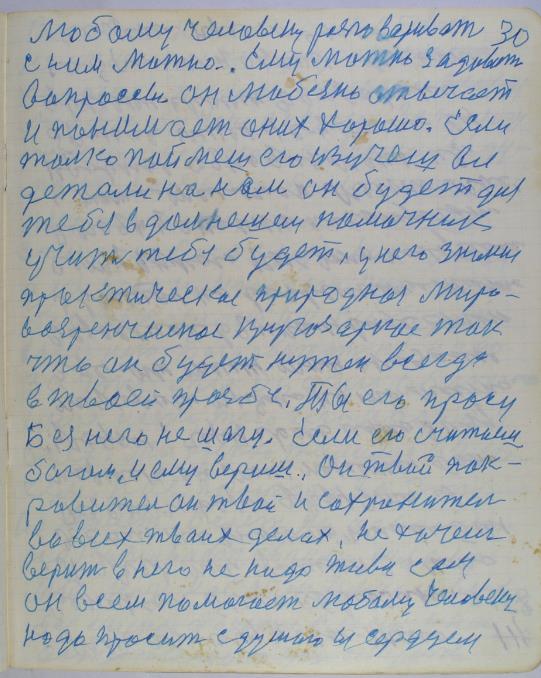 любому человеку разговариват 30
с ним можно. Ему можно задават
вапросы он любезно отвечает
и понимает он их хорошо. Если
толко поймеш его изучеш вси
детали на нем он будет для
тебя в далнешем помочник
учит тебя будет, у него знании
практическое природная миро-
воззренческое кругозаркое так
что он будет нужен всегда
в твоей прозбе. Ты его проси
Без него не шагу. Если его считаеш
богом, и ему вериш, Он твой пок-
ровител он твой и сохранител
во всех твоих делах, не хочеш
верит в него не надо живи сам
он всем помогает любому человеку
надо просит с душою и сердцем